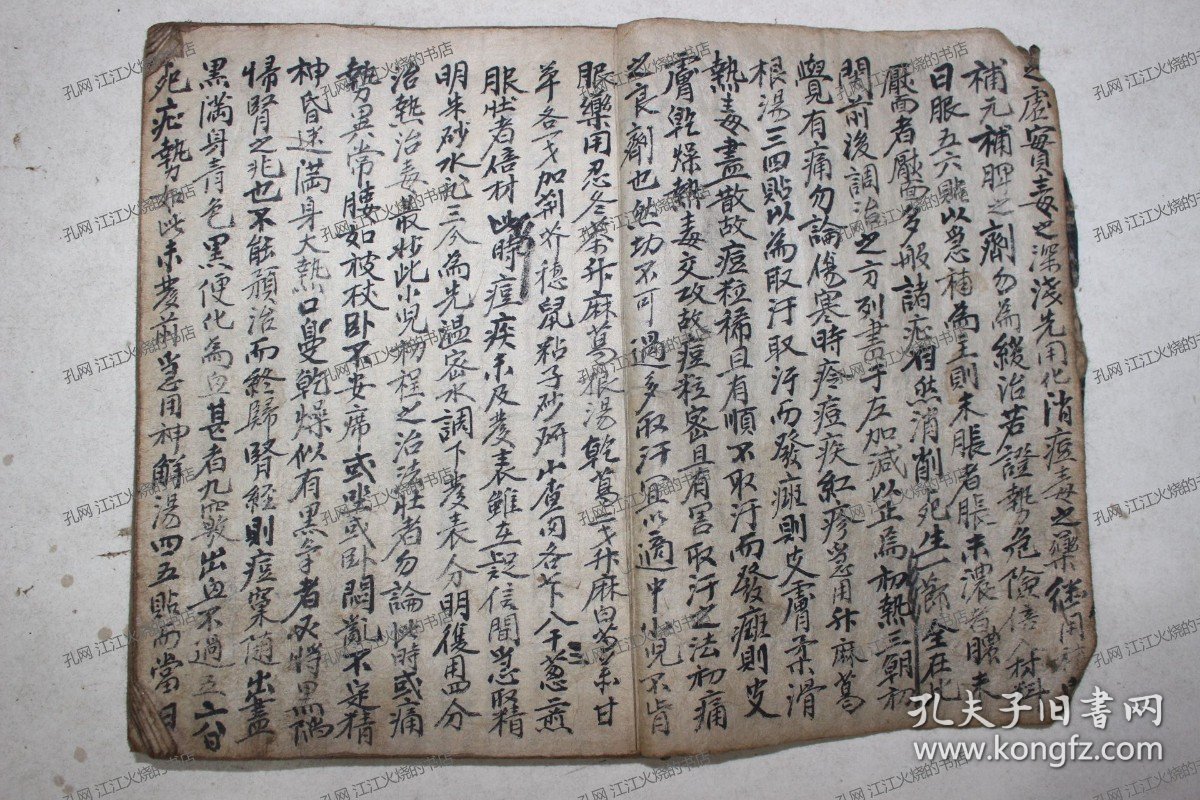 之虛實毒之深淺先用化消痘毒之藥继用
補元補脾之劑勿為緩治若證勢危險倍入材料
日服五六貼以急補為主則未脹者脹未濃者膿未
靨者靨多般諸症自然消削死生一節全在此
關前後調治之方列書于左加減以正為初熱三朝初
覺有痛勿論傷寒時疹痘疾紅疹急用升麻葛
根湯三四貼以為取汗取汗而發癍則皮膚柔滑
熱毒盡散故痘粒稀且有順不取汗而發癍則皮
膚乾燥熱毒交攻故痘粒密且有害取汗之法初痛
之良劑也然切不可過多取汗宜以適中小兒不肯
服藥用忍冬茶升麻葛根湯乾葛二戈升麻白芍茶甘
草各一戈加荊芥穗鼠粘子砂研山查肉各乍八干葱三煎
服壯者倍材此時痘疾未及發表雖在疑信間急取精
明朱砂水飛三分為先温密水調下發表分明復用四分
治熱治毒最妙此小兒初程之治法壯者勿論此時或痛
勢異常腰如被杖卧不安席或坐或卧悶亂不定精
神昏迷满身大熱口鼻乾燥似有黑
帰腎之兆也不能預治而終歸腎經則痘窠随出盡
黑満身青色黑便化為血甚者九竅出血不過五六日
死症勢如此未發前急用神解湯四五貼而當日
孔夫子旧书网
www.kongfz.com
孔网 江江火烧的书店